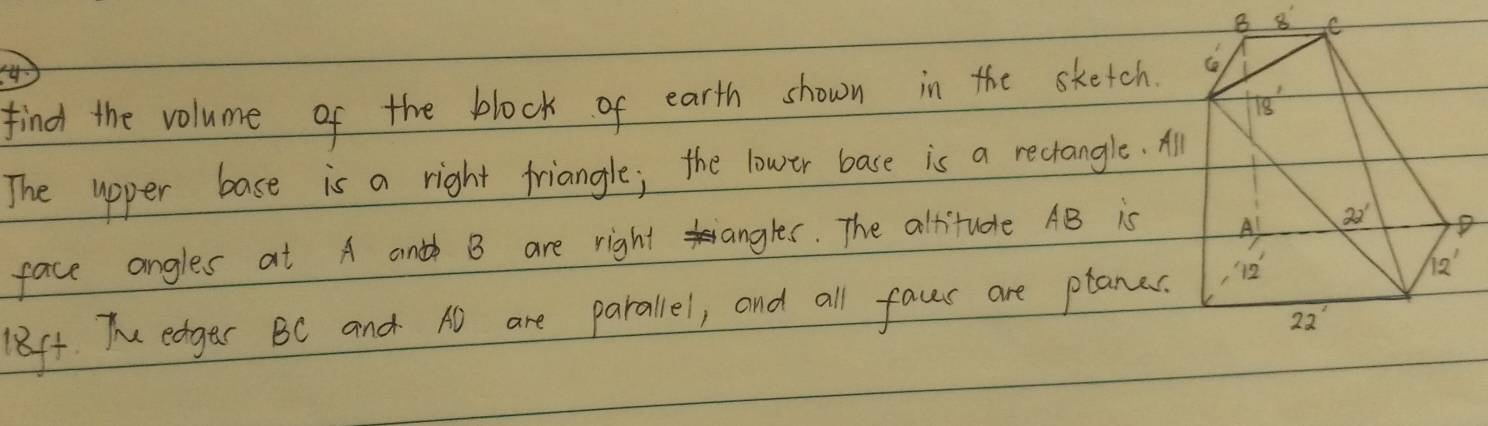 4.
find the volume of the block of earth shown in the sketch.
The upper base is a right triangle; the lower base is a rectangle. All
face angles at A and B are right angles. The altitude AB is
18ft. The edges BC and AD are parallel, and all faces are planes.
B 8' C
6'
18'
A 22' D
12' 12'
22'